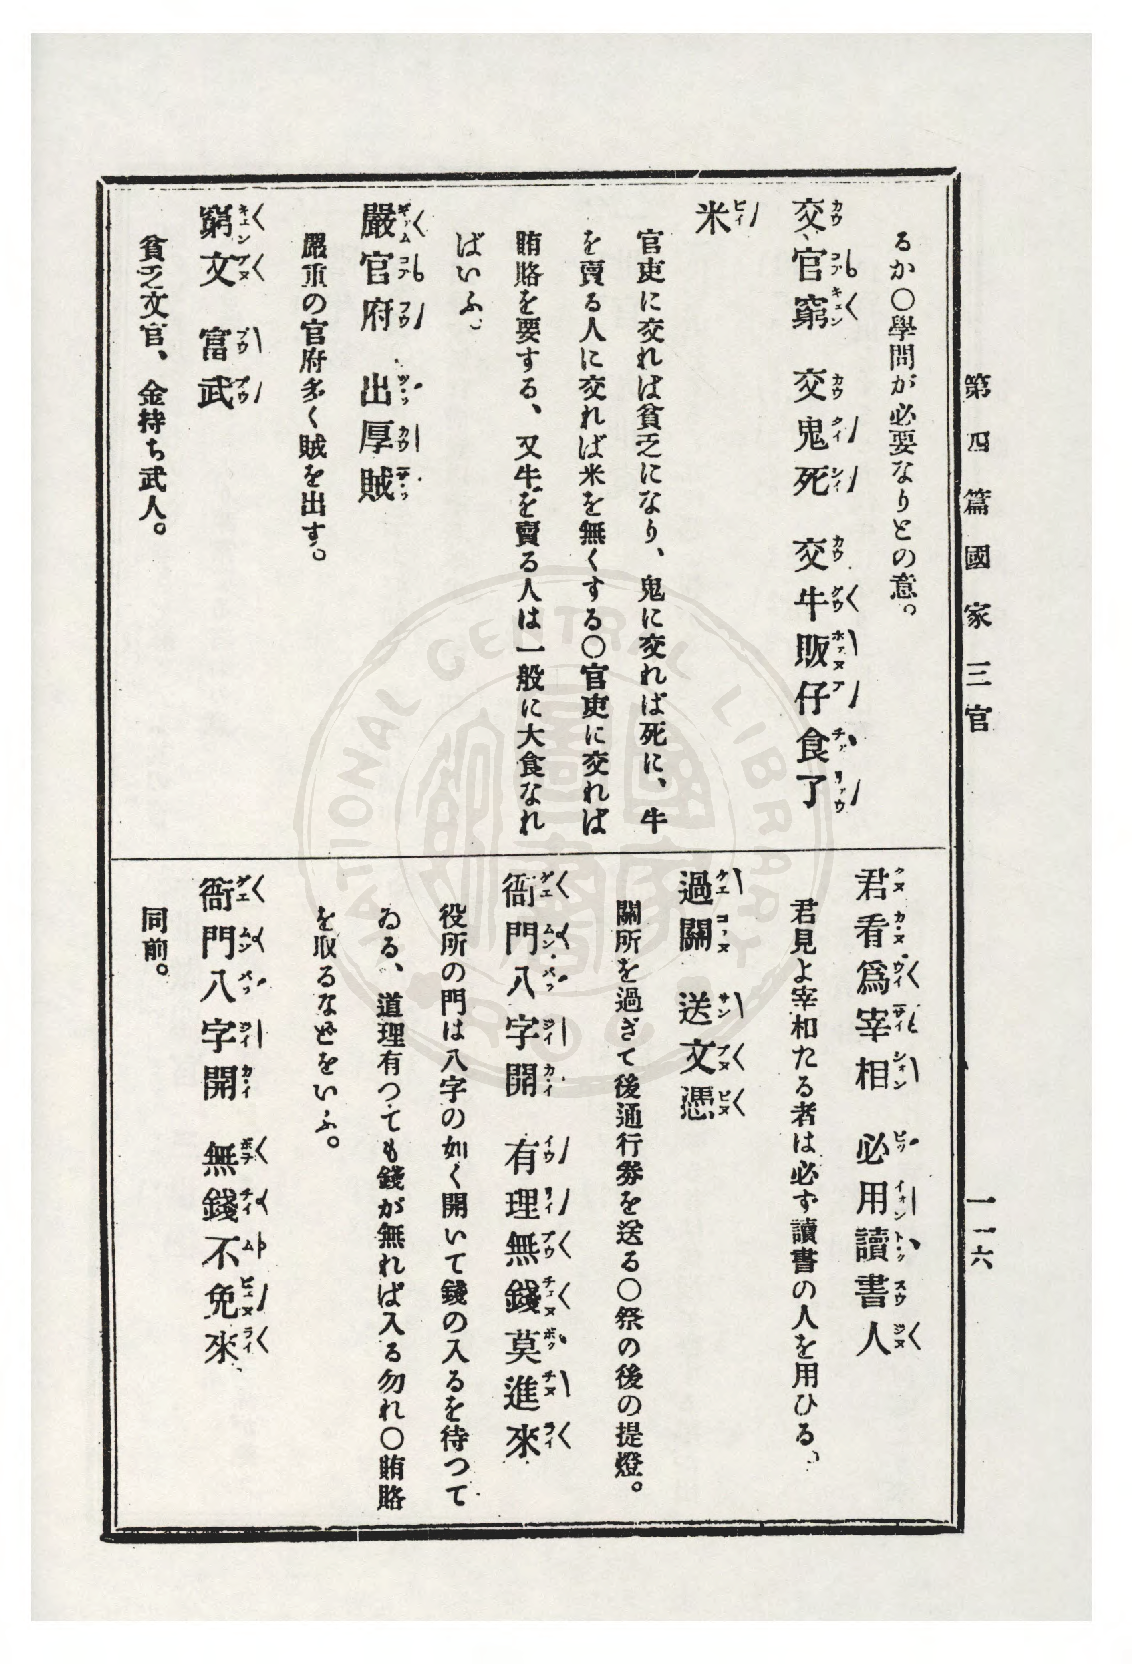 第四篇 國家 三官
一一六
るか〇學問が必要なりとの意。
交官窮 交鬼死 交牛販仔食了
米
官吏に交れば貧乏になり、鬼に交れば死に、牛
を賣る人に交れば米を無くする〇官吏に交れば
賄賂を要する、又牛を賣る人は一般に大食なれ
ばいふ、
嚴官府 出厚賊
嚴重の官府多く賊を出す。
窮文 富武
貧乏文官、金持ち武人。
君看爲宰相 必用讀書人
君見よ宰相たる者は必ず讀書の人を用ひる、
過關 送文憑
關所を過ぎて後通行劵を送る〇祭の後の提燈。
衙門八字開 有理無錢莫進來
役所の門は八字の如く開いて錢の入るを待つて
ゐる、道理有つても錢が無れば入る勿れ〇賄賂
を取るなどをいふ。
衙門八字開 無錢不免來
同前。
NATIONAL CENTRAL LIBRARY
R O C